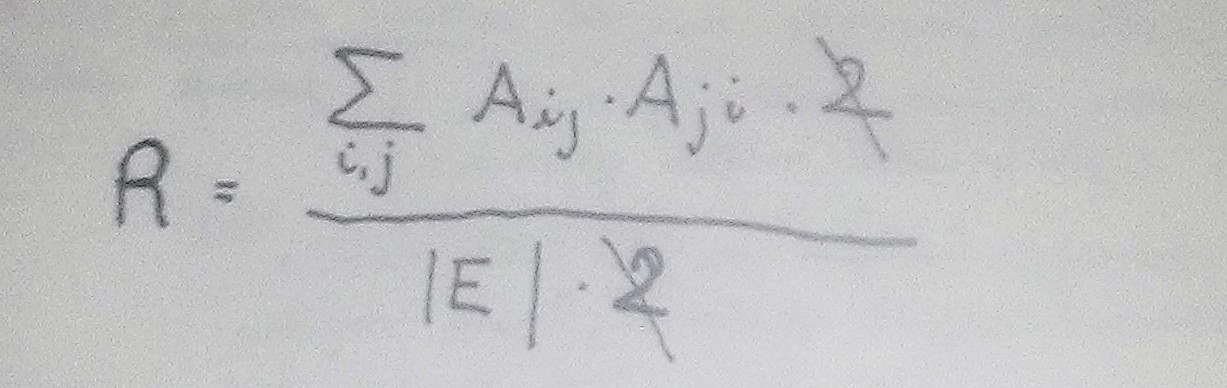 R = ∑_{i,j} A_{ij} · A_{ji} · 2
|E| · 2